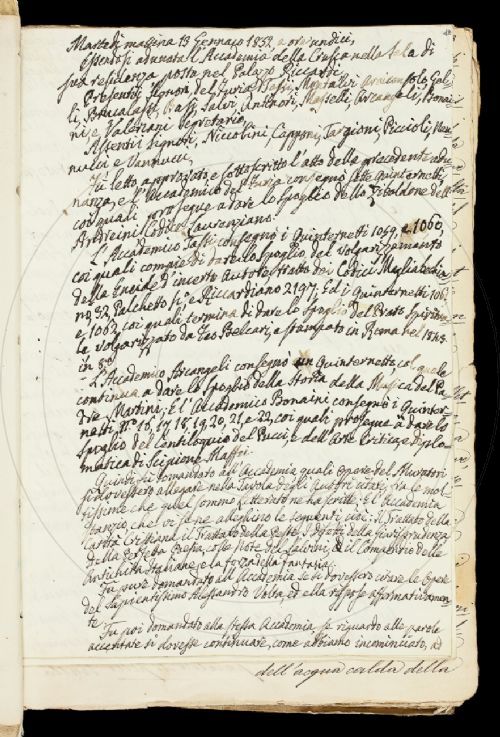 Martedì mattina 13 Gennaro 1852, a ore undici,
essendosi adunata l'Accademia della Crusca nella Sala di
sua residenza posta nel Palazo Riccardi.
Presenti i Signori, del Furia, Tassi, Montalvi Arciconsolo, Gel-
li, Brucalassi, Bassi, Salvi, Antinori, Masselli, Arcangeli, Bonai-
ni, e Valeriani Segretario,
Assenti i Signori, Niccolini, Capponi, Targioni, Puccioli, Nan-
nucci e Vannucci,
Fu letto, approvato, e sottoscritto l'atto della precedente adu-
nanza, e l'Accademico del Furia consegnò sette Quinternetti,
coi quali prosegue a dare lo Spoglio dello Zibaldone dell'
Andreini Codice Laurenziano.
L'Accademico Tassi consegnò i Quinternetti 1059, e 1060,
coi quali compie di dare lo Spoglio del Volgarizzamento
della Eneide d'incerto Autore tratto dai Codici Magliabechia
no, 32, Palchetto 5°, e Riccardiano 2197. Ed i Quinternetti 1061
e 1062, coi quali termina di dare lo Spoglio del Prato Spiritua-
le volgarizzato da Feo Belcari, e stampato in Roma nel 1843.
in 8°.
L'Accademico Arcangeli consegnò un Quinternetto, col quale
continua a dare lo Spoglio della Storia della Musica del Pa-
dre Martini; E l'Accademico Bonaini consegnò i Quinter-
netti N° 16, 17, 18, 19, 20, 21, e 22, coi quali prosegue a dare lo
Spoglio del Centiloquio del Pucci, e dell'Arte Critica e diplo-
matica di Scipione Maffei.
Quindi fu domandato all'Accademia quali Opere del Muratori
si dovessero allegare nella Tavola degli Autori citati, fra le mol-
tissime che quel sommo Letterato ne ha scritte: E l'Accademia
stanziò, che vi se ne alleghino le seguenti cioè: Il Trattato della
Carità Cristiana, il Trattato della Peste, I difetti della Giurisprudenza
della Perfetta Poesia, colle Note del Salvini, Il Compendio delle
Antichità Italiane, e la forza della fantasia.
Fu pure domandato all'Accademia se si dovessero citare le Opere
del Sapientissimo Alessandro Volta, ed ella rispose affermativamen-
te
Fu poi domandato alla stessa Accademia, se riguardo alle parole
accentate si dovesse continuare, come abbiamo incominciato, ad
dell'acqua calda della